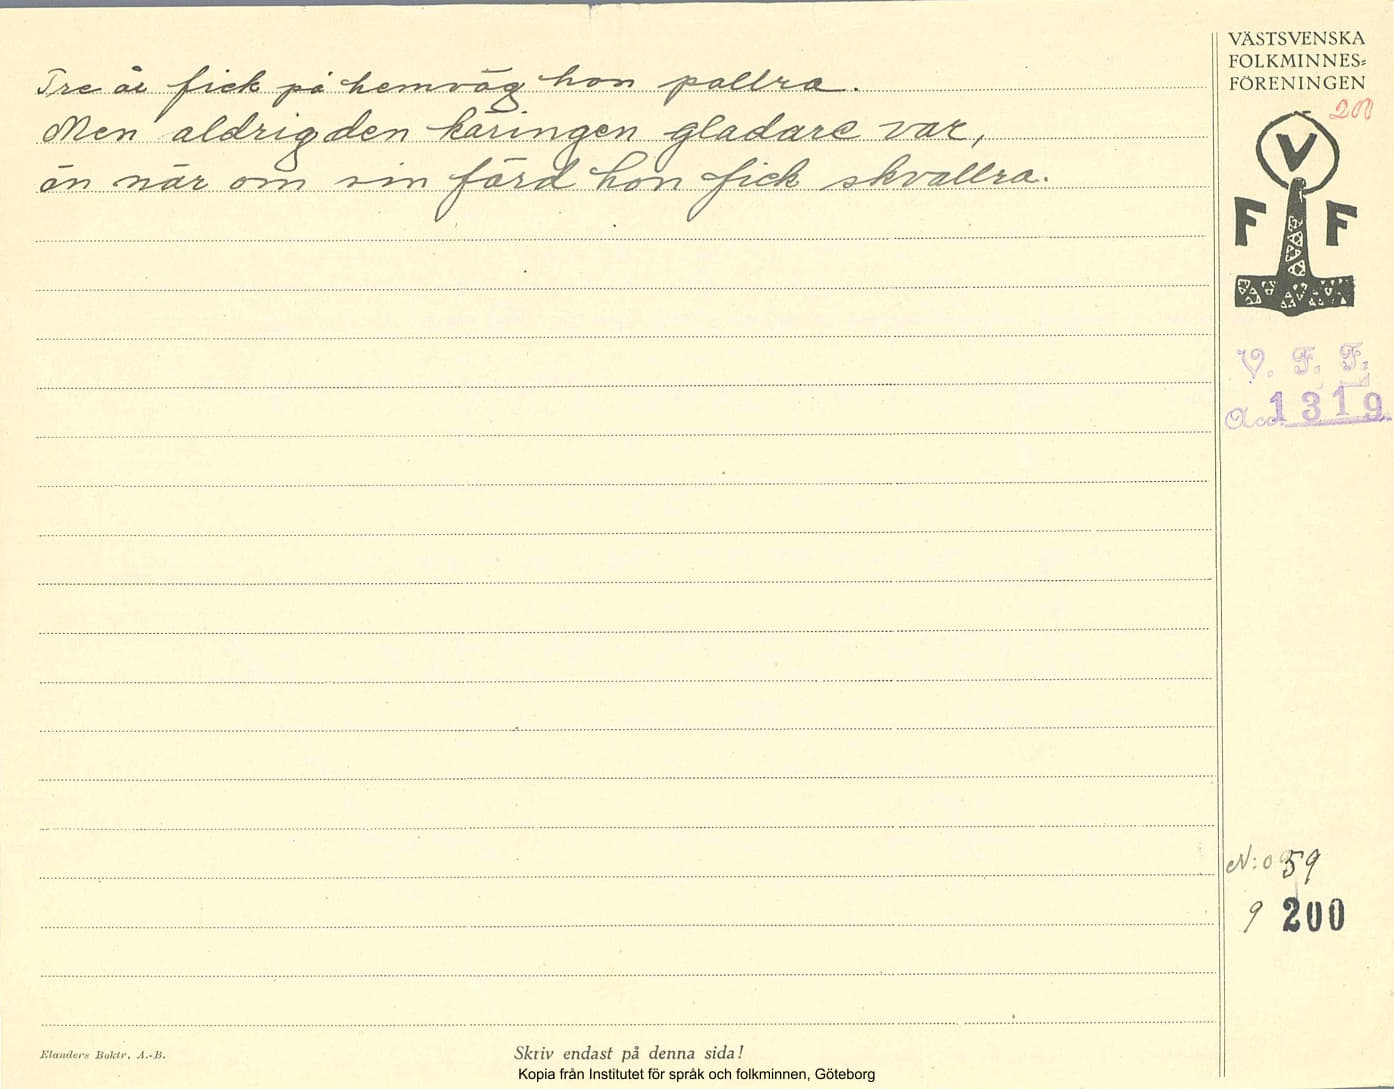 Tre år fick på hemväg hon pallra.
Men aldrig den käringen gladare var,
än när om sin färd hon fick skvallra.
VÄSTSVENSKA
FOLKMINNES=
FÖRENINGEN
200
V
F F
V. F. F.
Acc. 1319
N:o 59
9 200
Elanders Boktr. A.-B.
Skriv endast på denna sida!
Kopia från Institutet för språk och folkminnen, Göteborg